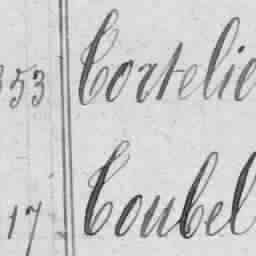 353 Cortelie
17 Coubel